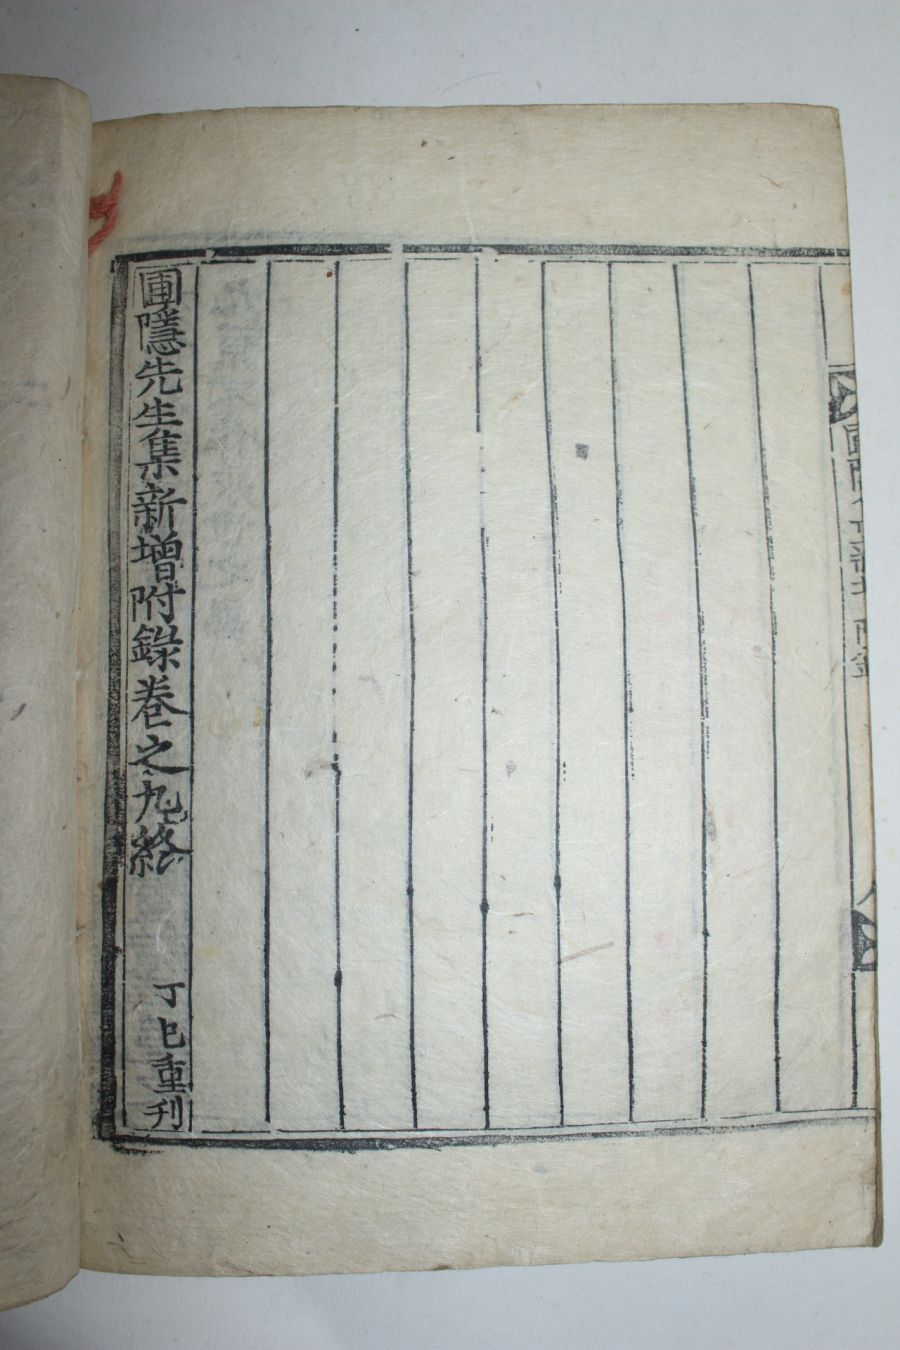 圃隱先生集新增附錄卷之九終
丁巳重刊